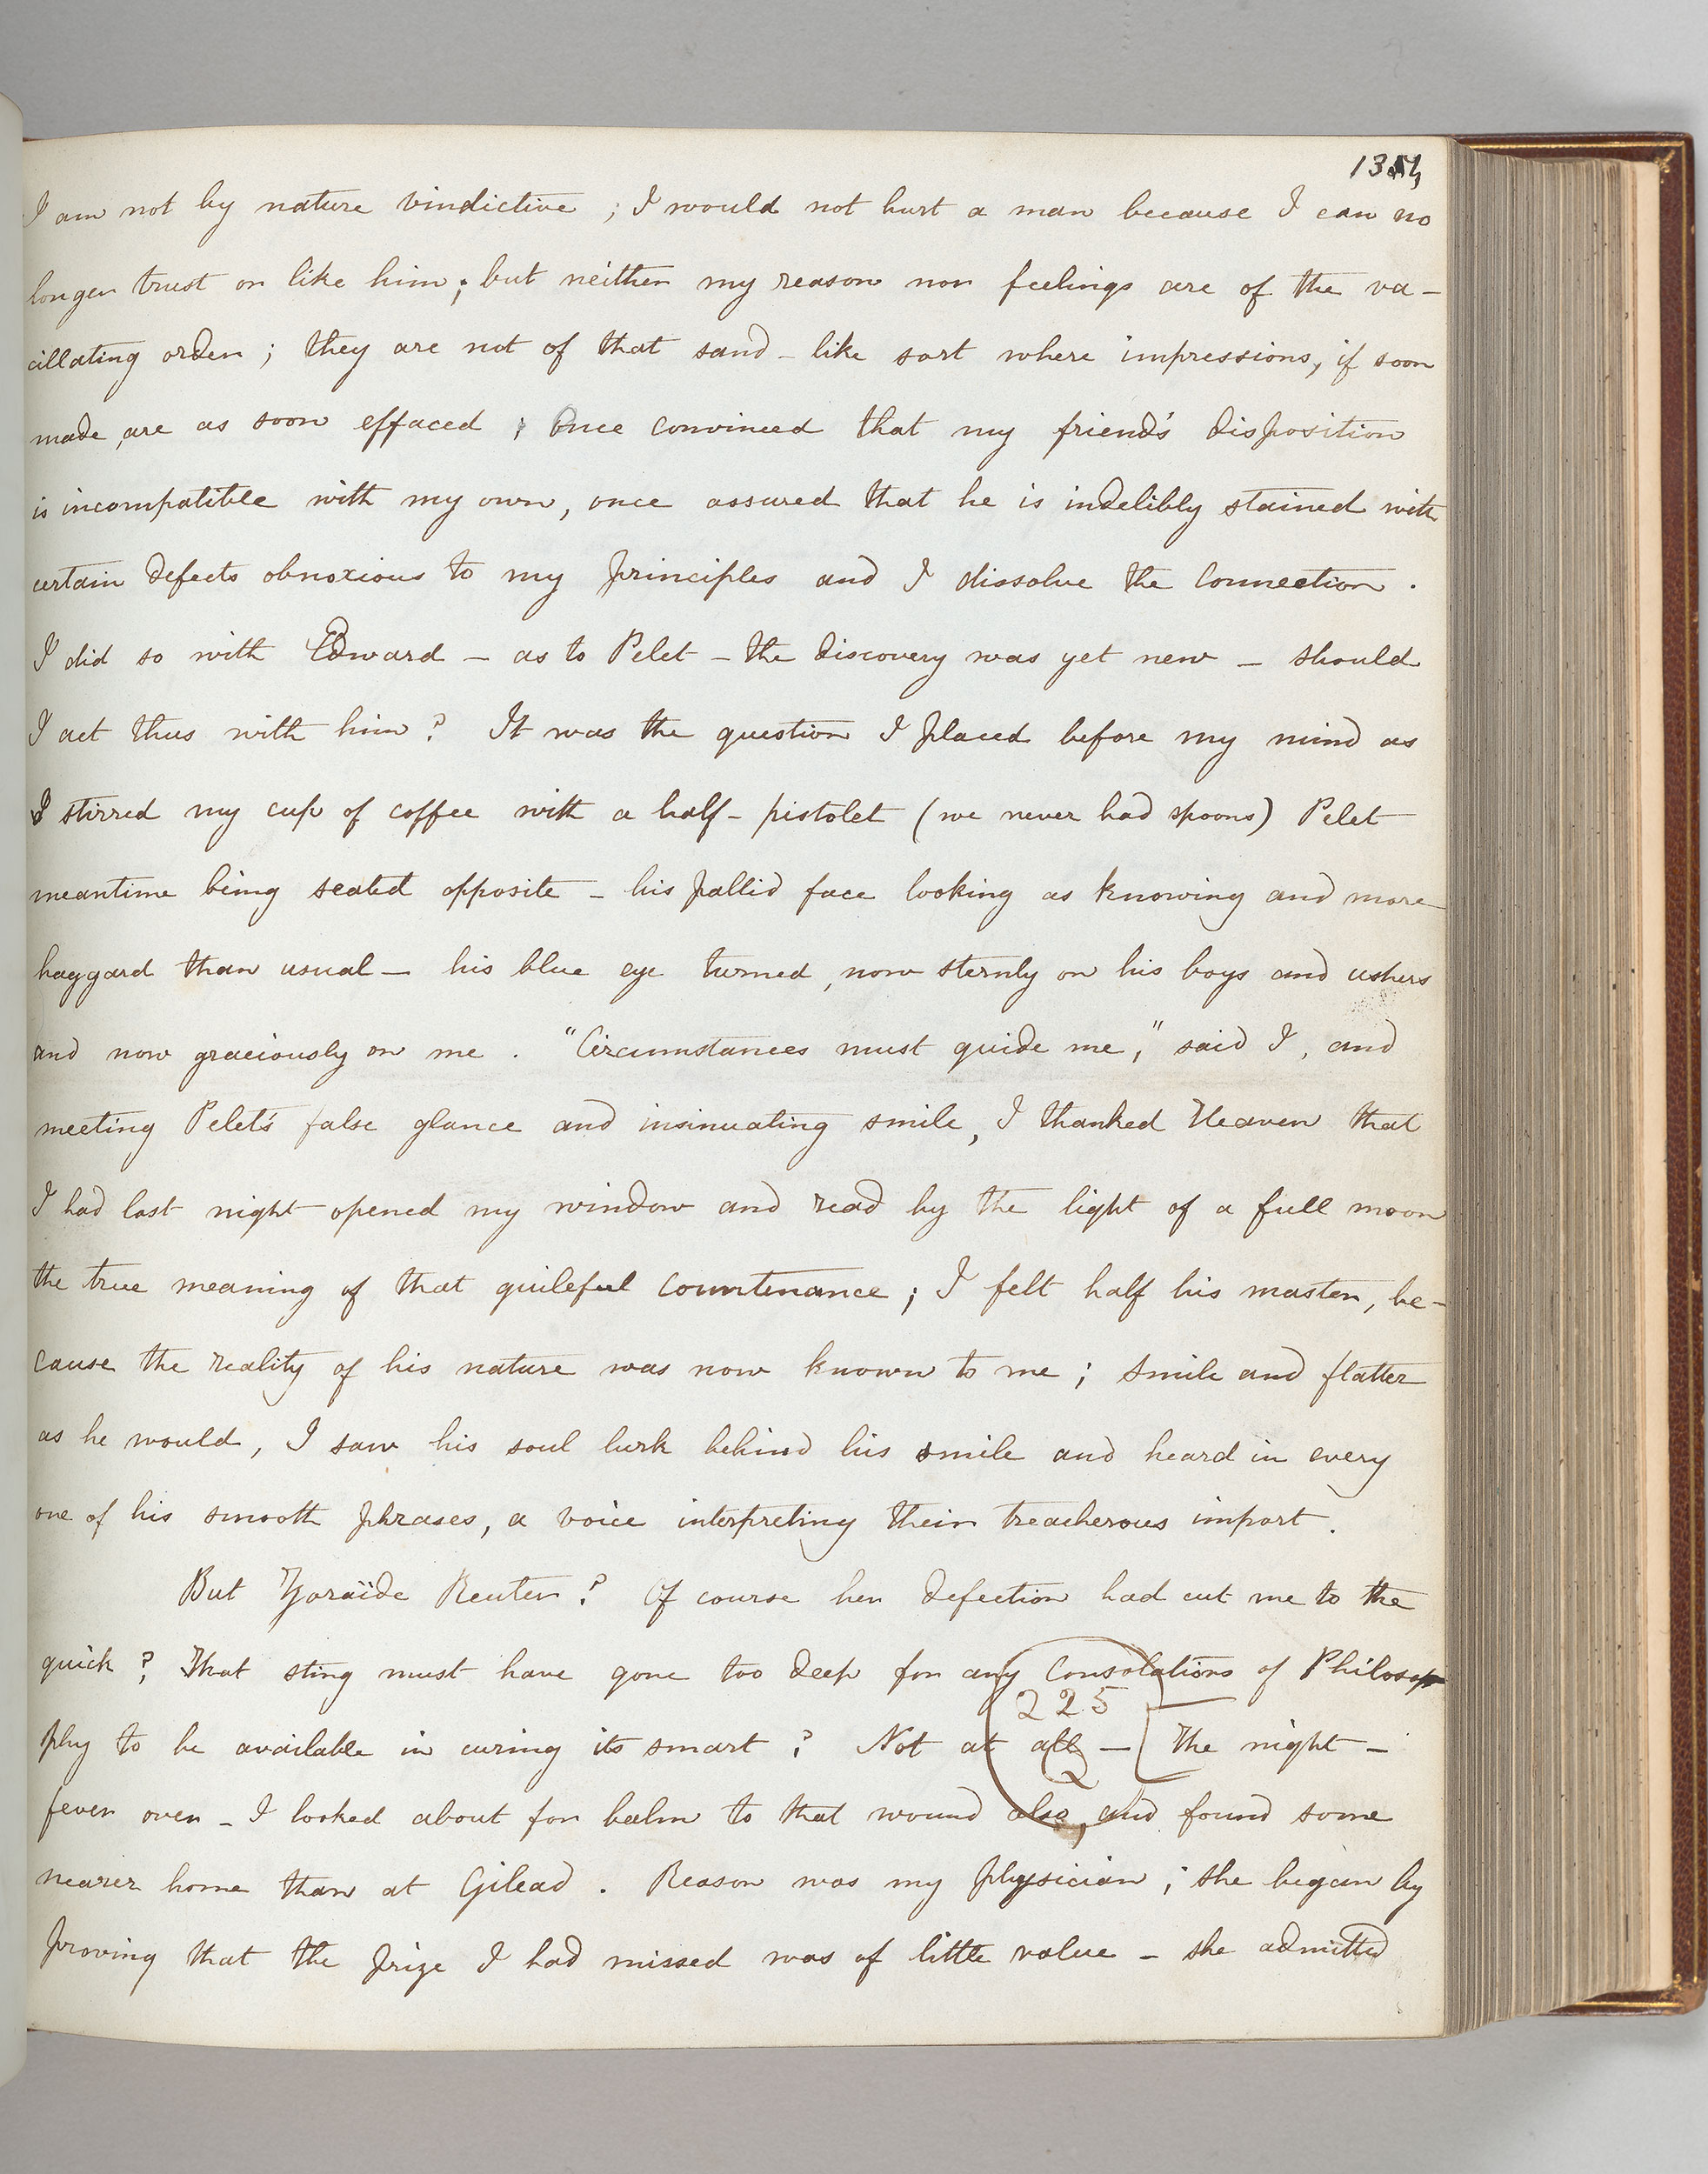 I am not by nature vindictive ; I would not hurt a man because I can no
longer trust or like him ; but neither my reason nor feelings are of the va-
cillating order ; they are not of that sand-like sort where impressions, if soon
made, are as soon effaced ; Once convinced that my friend's disposition
is incompatible with my own, once assured that he is indelibly stained with
certain defects obnoxious to my principles and I dissolve the Connection .
I did so with Edward - as to Pelet - the discovery was yet new - should
I act thus with him ? It was the question I placed before my mind as
I stirred my cup of coffee with a half-pistolet (we never had spoons) Pelet
meantime being seated opposite - his pallid face looking as knowing and more
haggard than usual - his blue eye turned, now sternly on his boys and ushers
and now graciously on me . "Circumstances must guide me," said I, and
meeting Pelet's false glance and insinuating smile, I thanked Heaven that
I had last night opened my window and read by the light of a full moon
the true meaning of that guileful countenance ; I felt half his master, be-
cause the reality of his nature was now known to me ; Smile and flatter
as he would, I saw his soul lurk behind his smile and heard in every
one of his smooth phrases, a voice interpreting their treacherous import .
But Zoraïde Reuter ? Of course her defection had cut me to the
quick ? That sting must have gone too deep for any Consolations of Philoso-
225
phy to be available in curing its smart ? Not at all - [ The night-
fever over - I looked about for balm to that wound also, and found some
nearer home than at Gilead . Reason was my physician ; she began by
proving that the prize I had missed was of little value - she admitted